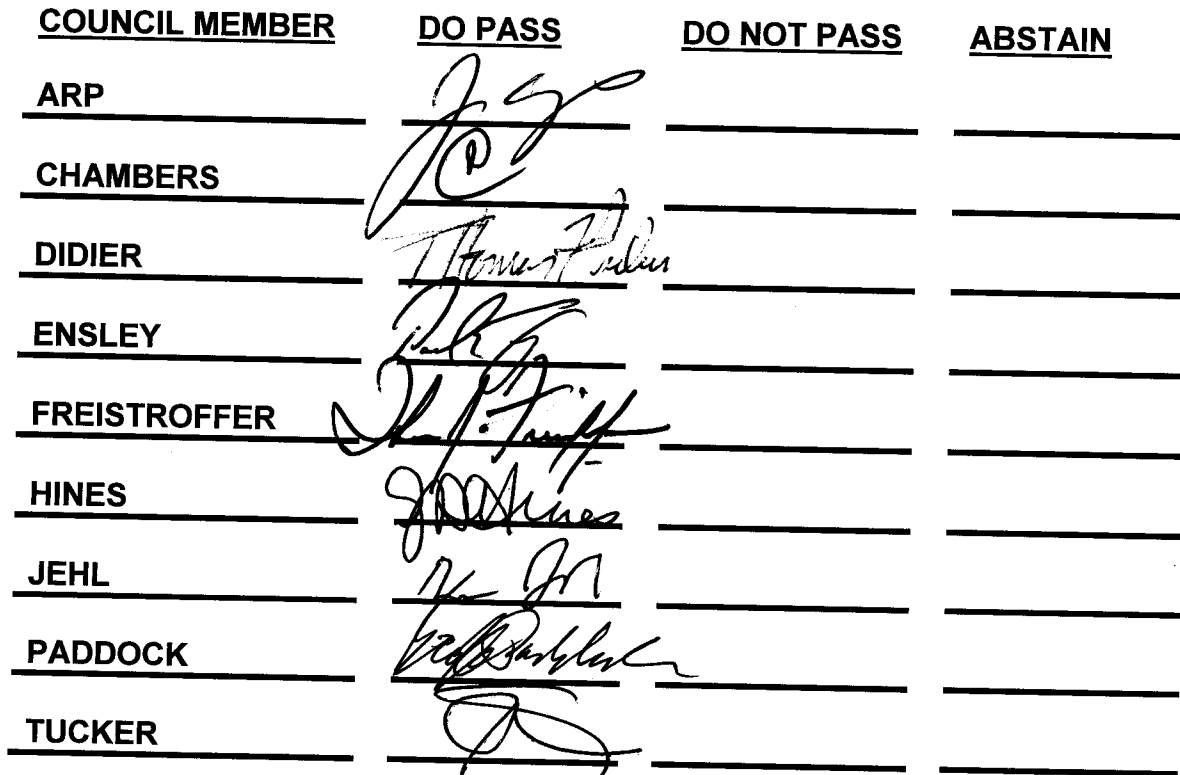 COUNCIL MEMBER DO PASS DO NOT PASS ABSTAIN
ARP
CHAMBERS
DIDIER Thomas Didier
ENSLEY
FREISTROFFER
HINES Hines
JEHL
PADDOCK Paddock
TUCKER